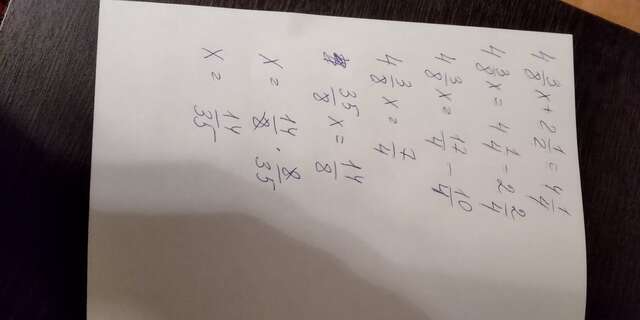 4 3/8 x + 2 1/2 = 4 1/4
4 3/8 x = 4 1/4 - 2 2/4
4 3/8 x = 17/4 - 10/4
4 3/8 x = 7/4
35/8 x = 14/8
x = 14/8 · 8/35
x = 14/35